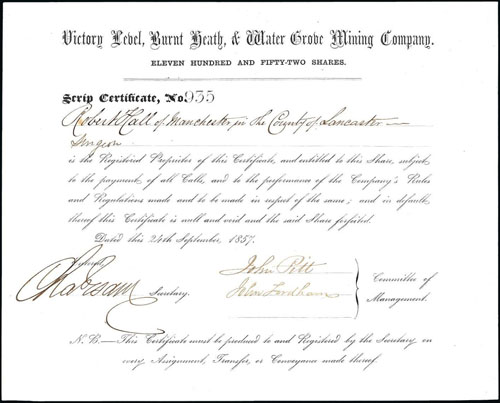 Victory Level, Burnt Heath, & Water Grove Mining Company.
ELEVEN HUNDRED AND FIFTY-TWO SHARES.
Scrip Certificate, No. 935
Robert Hall of Manchester in the County of Lancaster
Surgeon
is the Registered Proprietor of this Certificate, and entitled to this Share, subject
to the payment of all Calls, and to the performance of the Company's Rules
and Regulations made and to be made in respect of the same; and in default
thereof this Certificate is null and void and the said Share forfeited.
Dated this 24th September, 1857.
Secretary.
John Pitt
John Fordham
Committee of
Management.
N.B.—This Certificate must be produced to and Registered by the Secretary on
every Assignment, Transfer, or Conveyance made thereof.